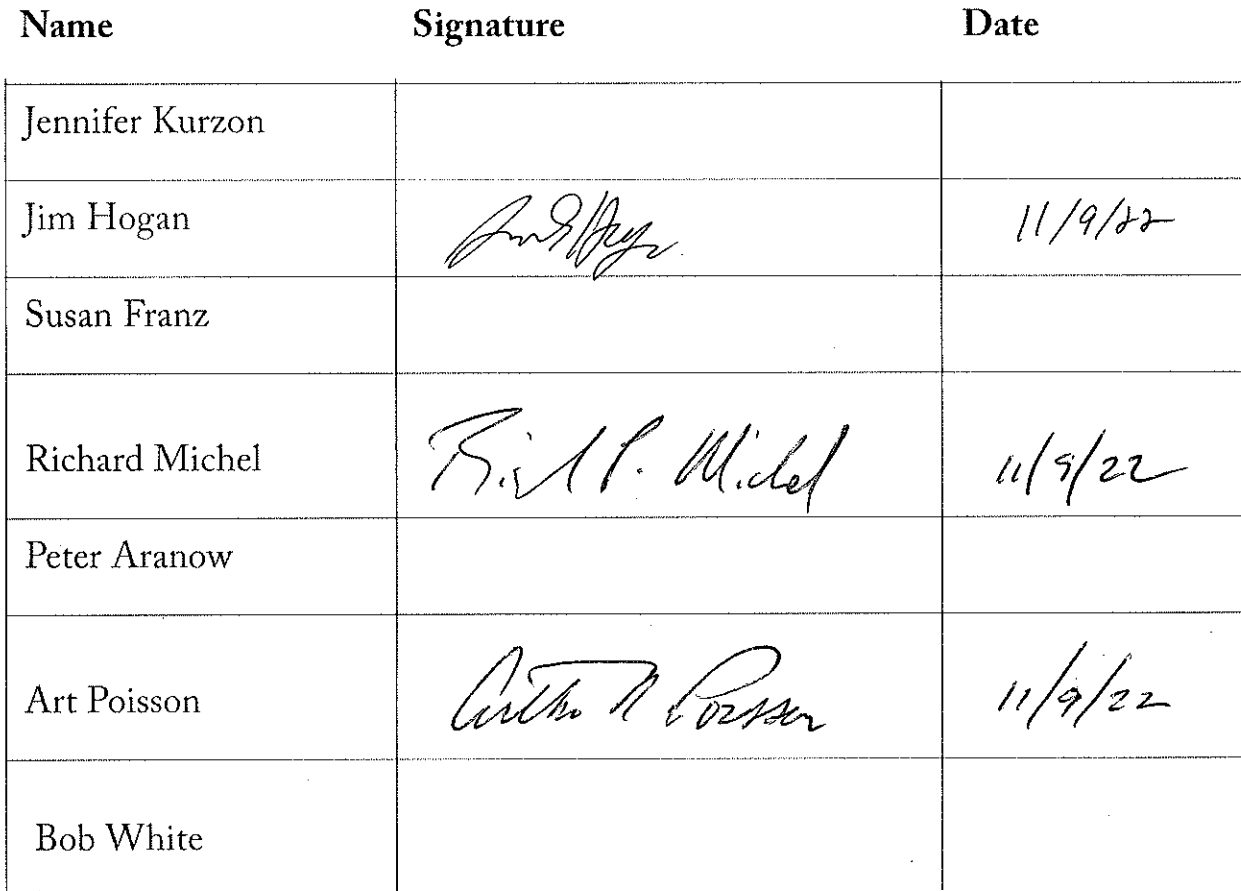 Name Signature Date
Jennifer Kurzon
Jim Hogan 11/9/22
Susan Franz
Richard Michel Richard P. Michel 11/9/22
Peter Aranow
Art Poisson Arthur N Poisson 11/9/22
Bob White